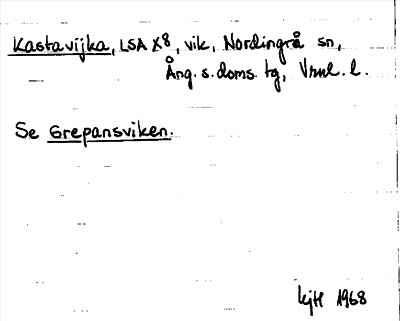 Kastavijka, LSA X8, vik, Nordingrå sn,
Ång. s. doms. tg, Vrnl. l.
Se Grepansviken.
kjH 1968